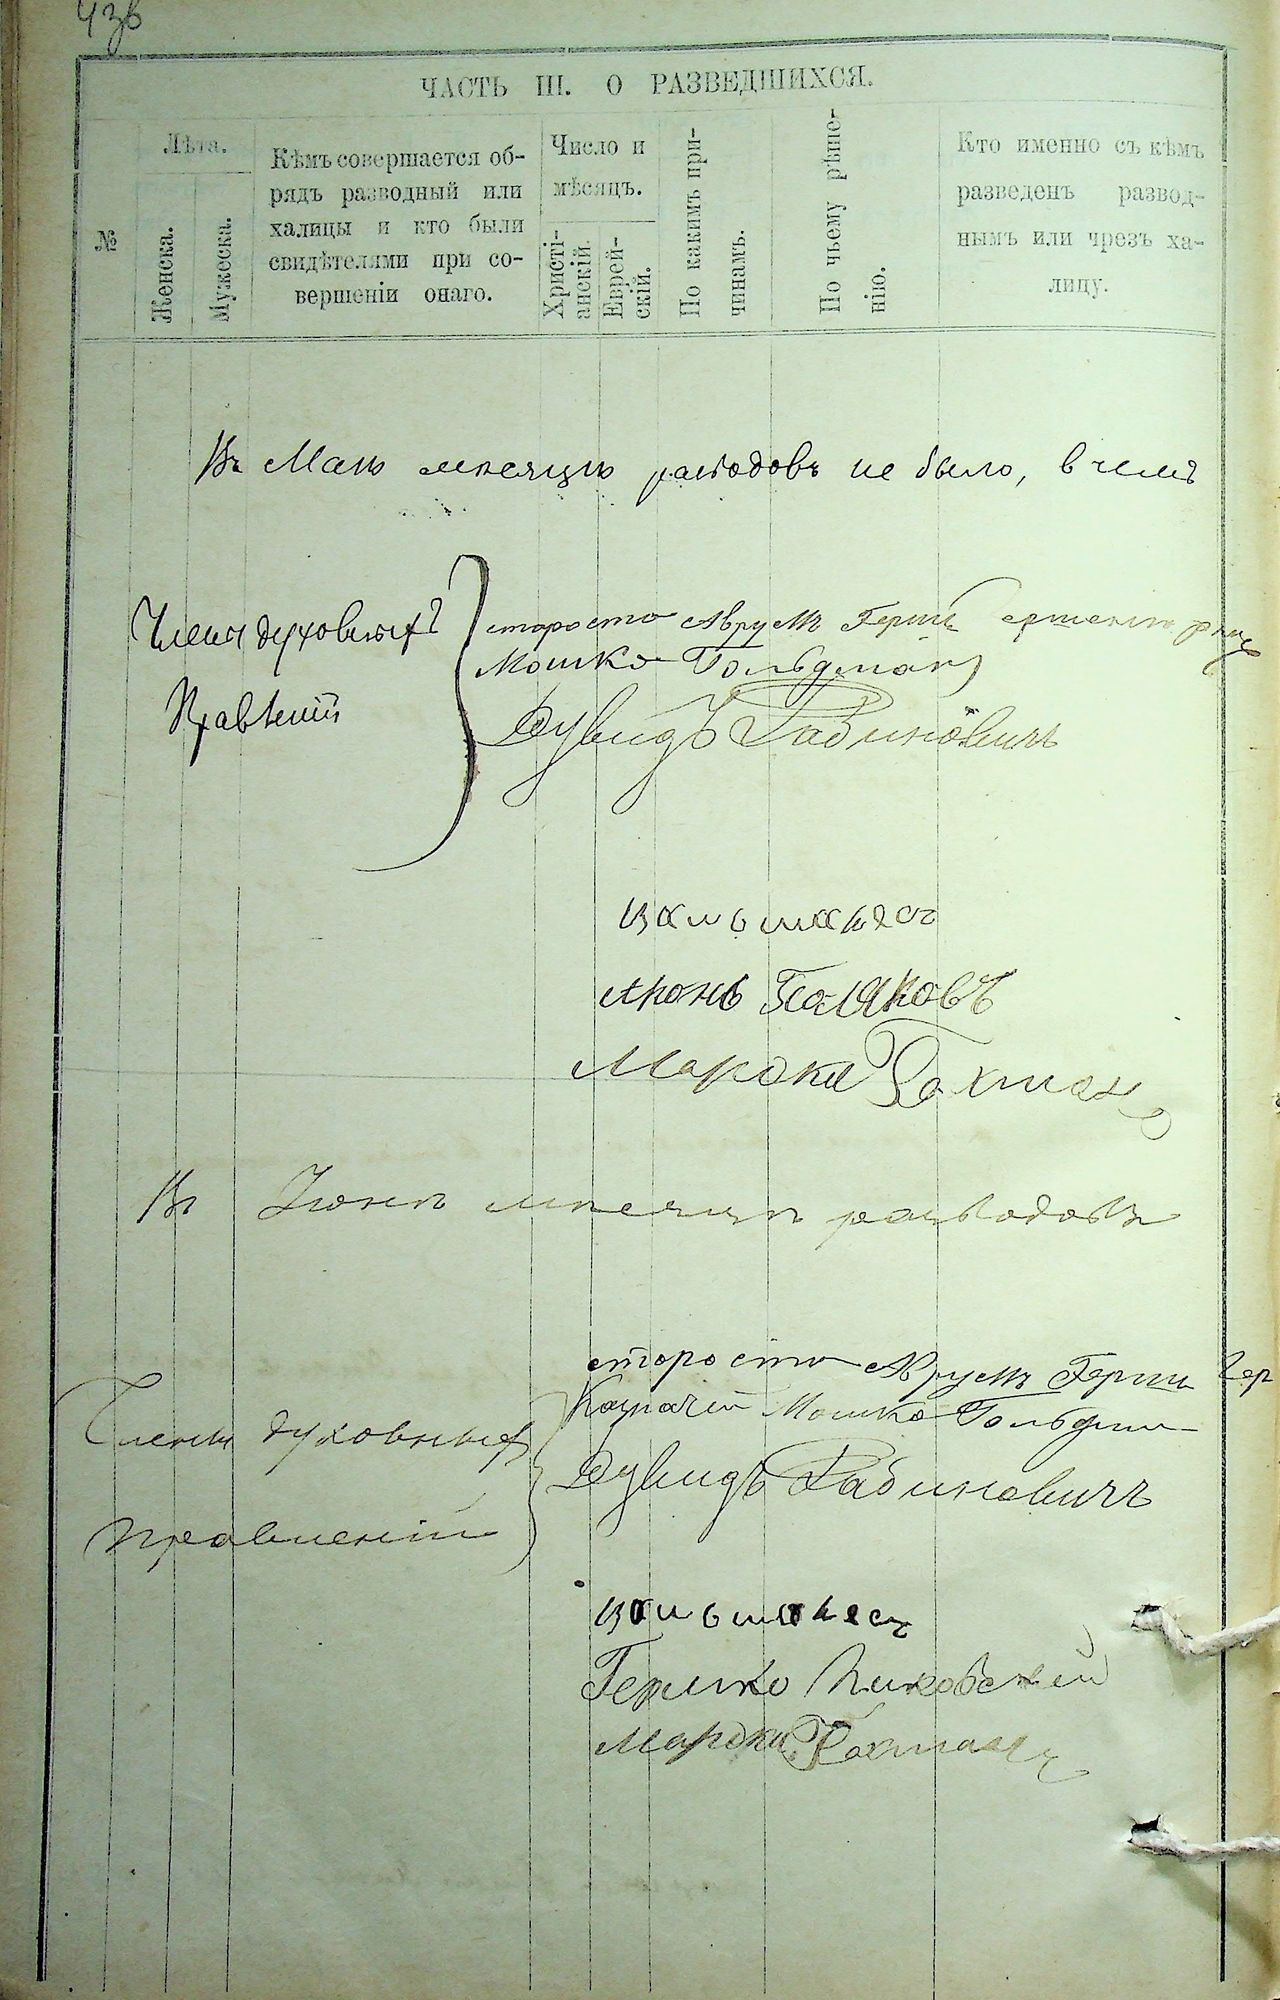 436
ЧАСТЬ III. О РАЗВЕДШИХСЯ.
№
Лѣта.
Женска.
Мужеска.
Кѣмъ совершается об-
рядъ разводный или
халицы и кто были
свидѣтелями при со-
вершеніи онаго.
Число и
мѣсяцъ.
Христі-
анскій.
Еврей-
скій.
По какимъ при-
чинамъ.
По чьему рѣше-
нію.
Кто именно съ кѣмъ
разведенъ развод-
нымъ или чрезъ ха-
лицу.
Въ Маѣ мѣсяцѣ разводовъ не было, в чемъ
Члены духовныхъ
Правленій
старосто Аврумъ Герш
Мошко Гольдман
Дувидъ Рабиновичъ
Аронъ Поляковъ
Мардко Бохман
Въ Іюнѣ мѣсяцѣ разводовъ
Члены духовных
правленій
старосто Аврумъ Герш Гер
Казначей Мошко Гольдман
Дувидъ Рабиновичъ
Гершко
Мардко Бохман